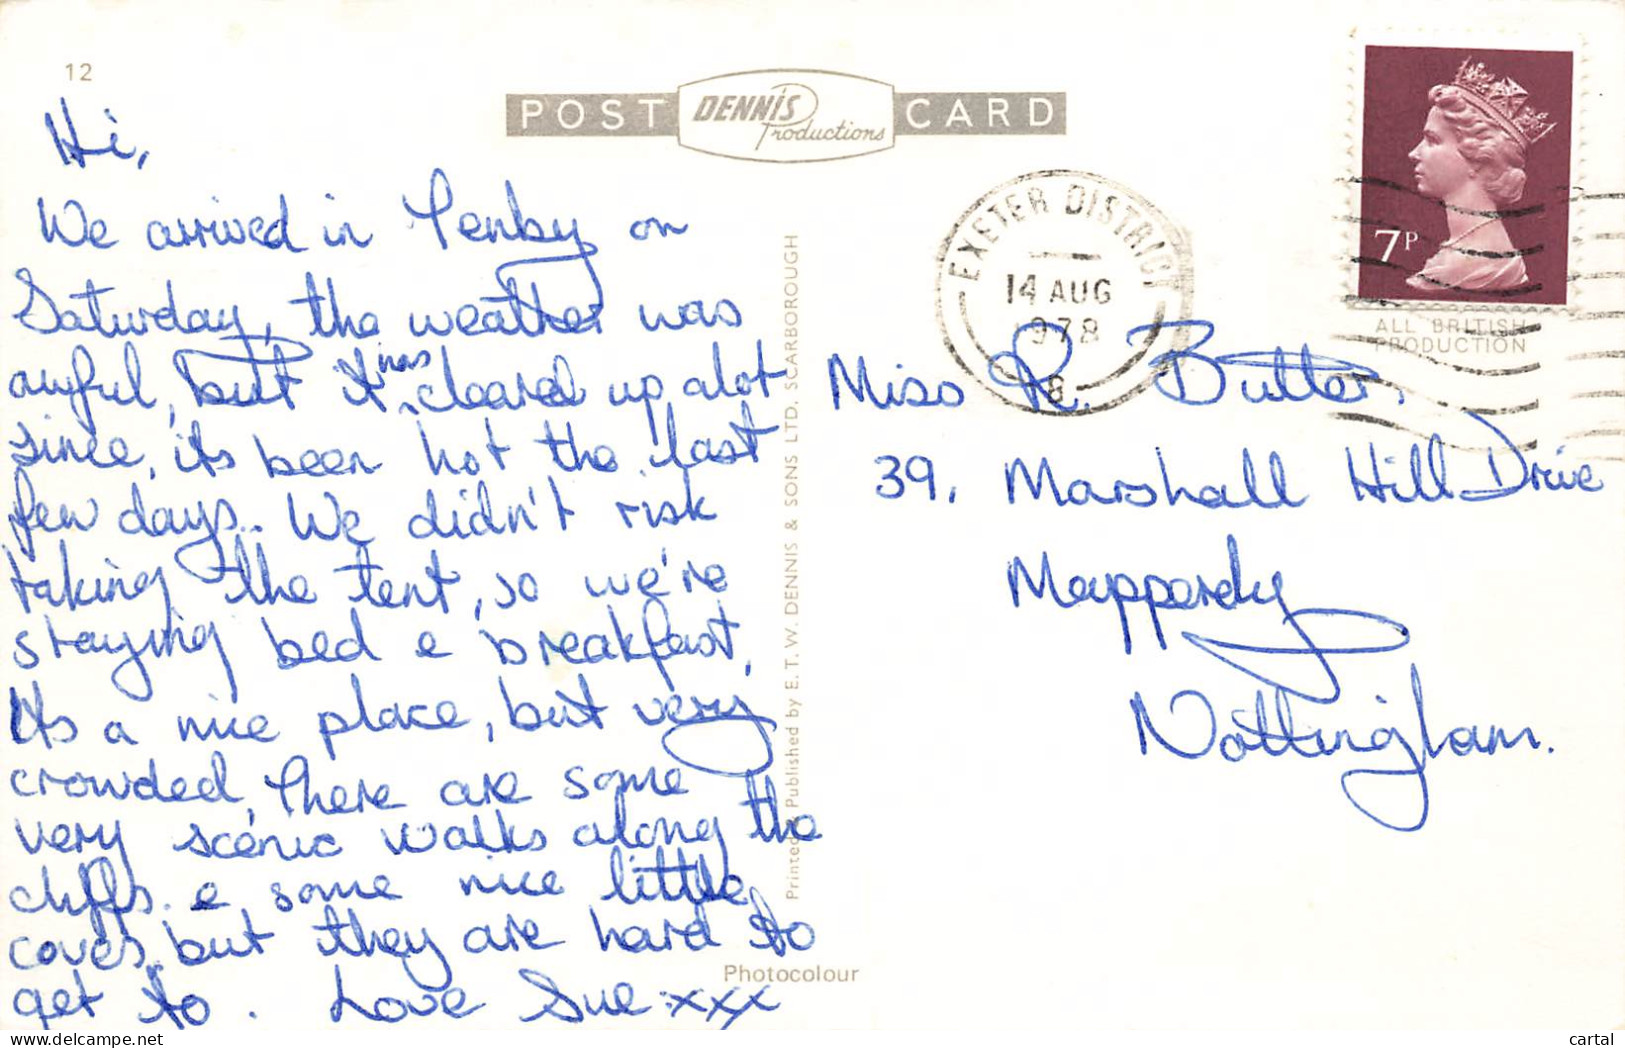 12
POST DENNIS Productions CARD
Hi,
We arrived in Tenby on
Saturday, the weather was
awful, but it has cleared up alot
since, its been hot the last
few days.. We didn't risk
taking the tent, so we're
staying bed & breakfast,
Its a nice place, but very
crowded, There are some
very scenic walks along the
cliffs. & some nice little
coves, but they are hard to
get to. Love Sue xxx
Printed & Published by E. T. W. DENNIS & SONS LTD. SCARBOROUGH
Photocolour
EXETER DISTRICT
14 AUG
1978
8
7P
ALL BRITISH
PRODUCTION
Miss R. Butler,
39, Marshall Hill Drive
Mapperely
Nottingham.
cartal
www.delcampe.net